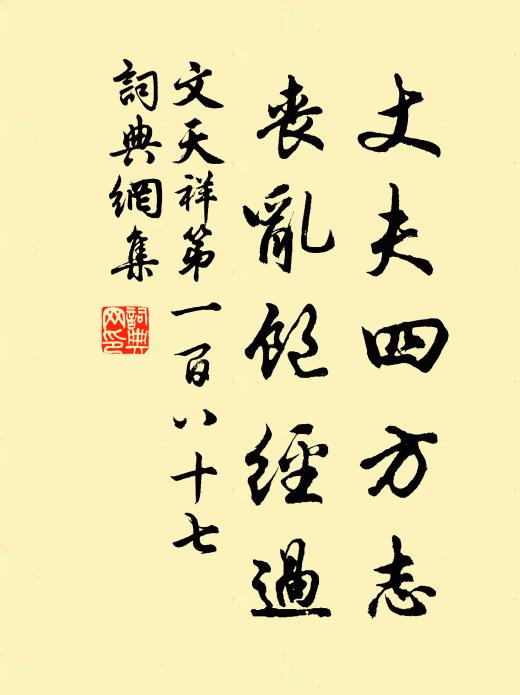 丈夫四方志
喪亂飽經過
文天祥第一百八十七
詞典網集
詞典网印